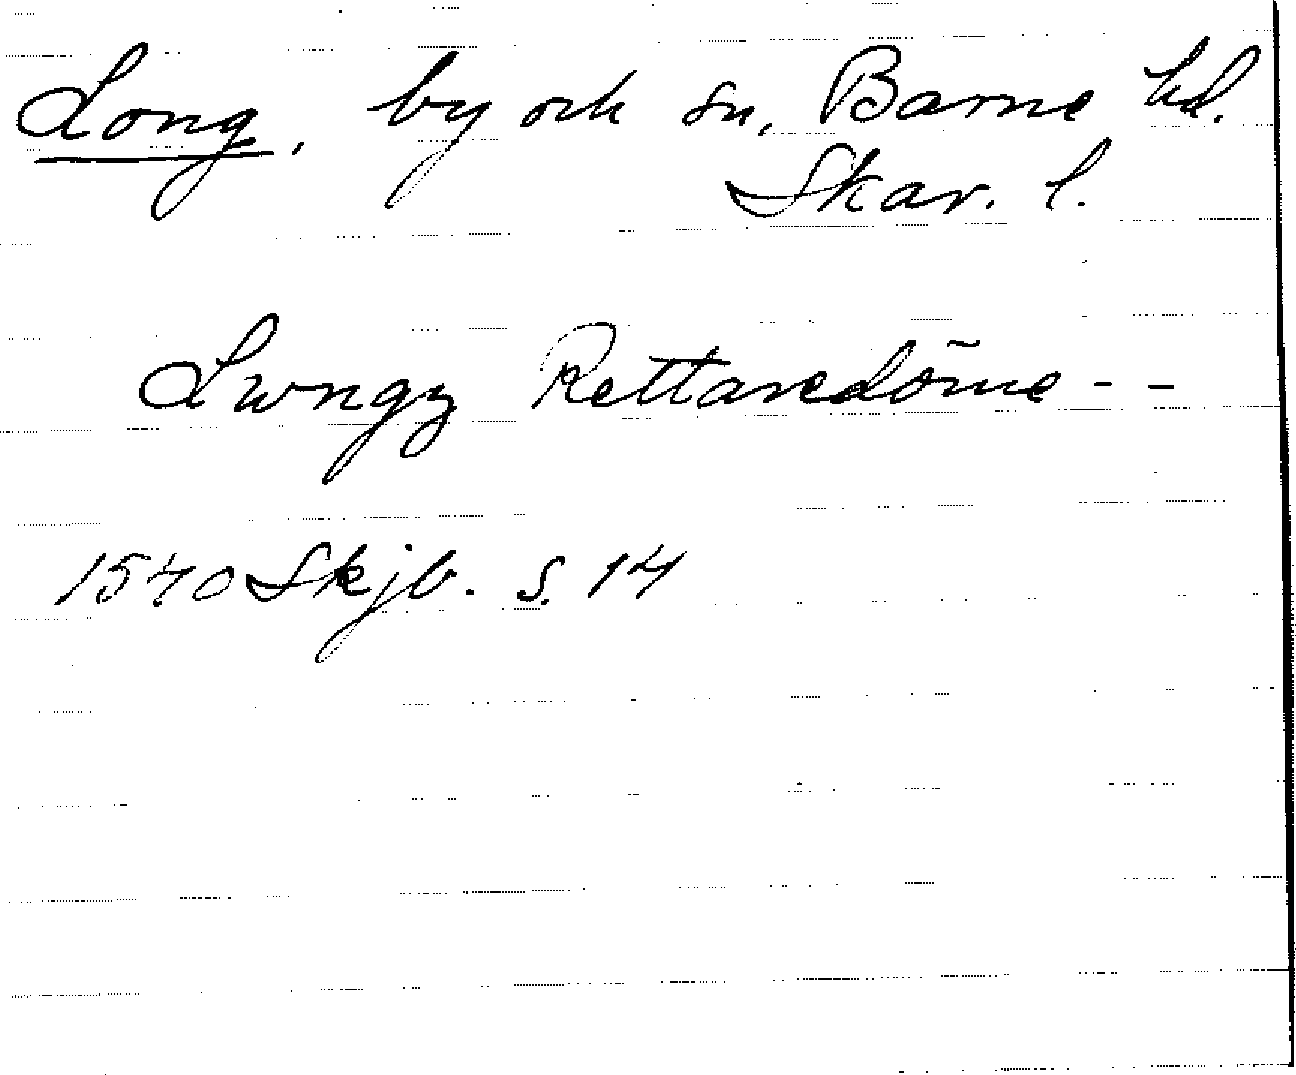 Long, by och sn, Barne hd.
Skar. l.
Lwngy Rettaredöme̅ - -
1540 Skjb. s. 14